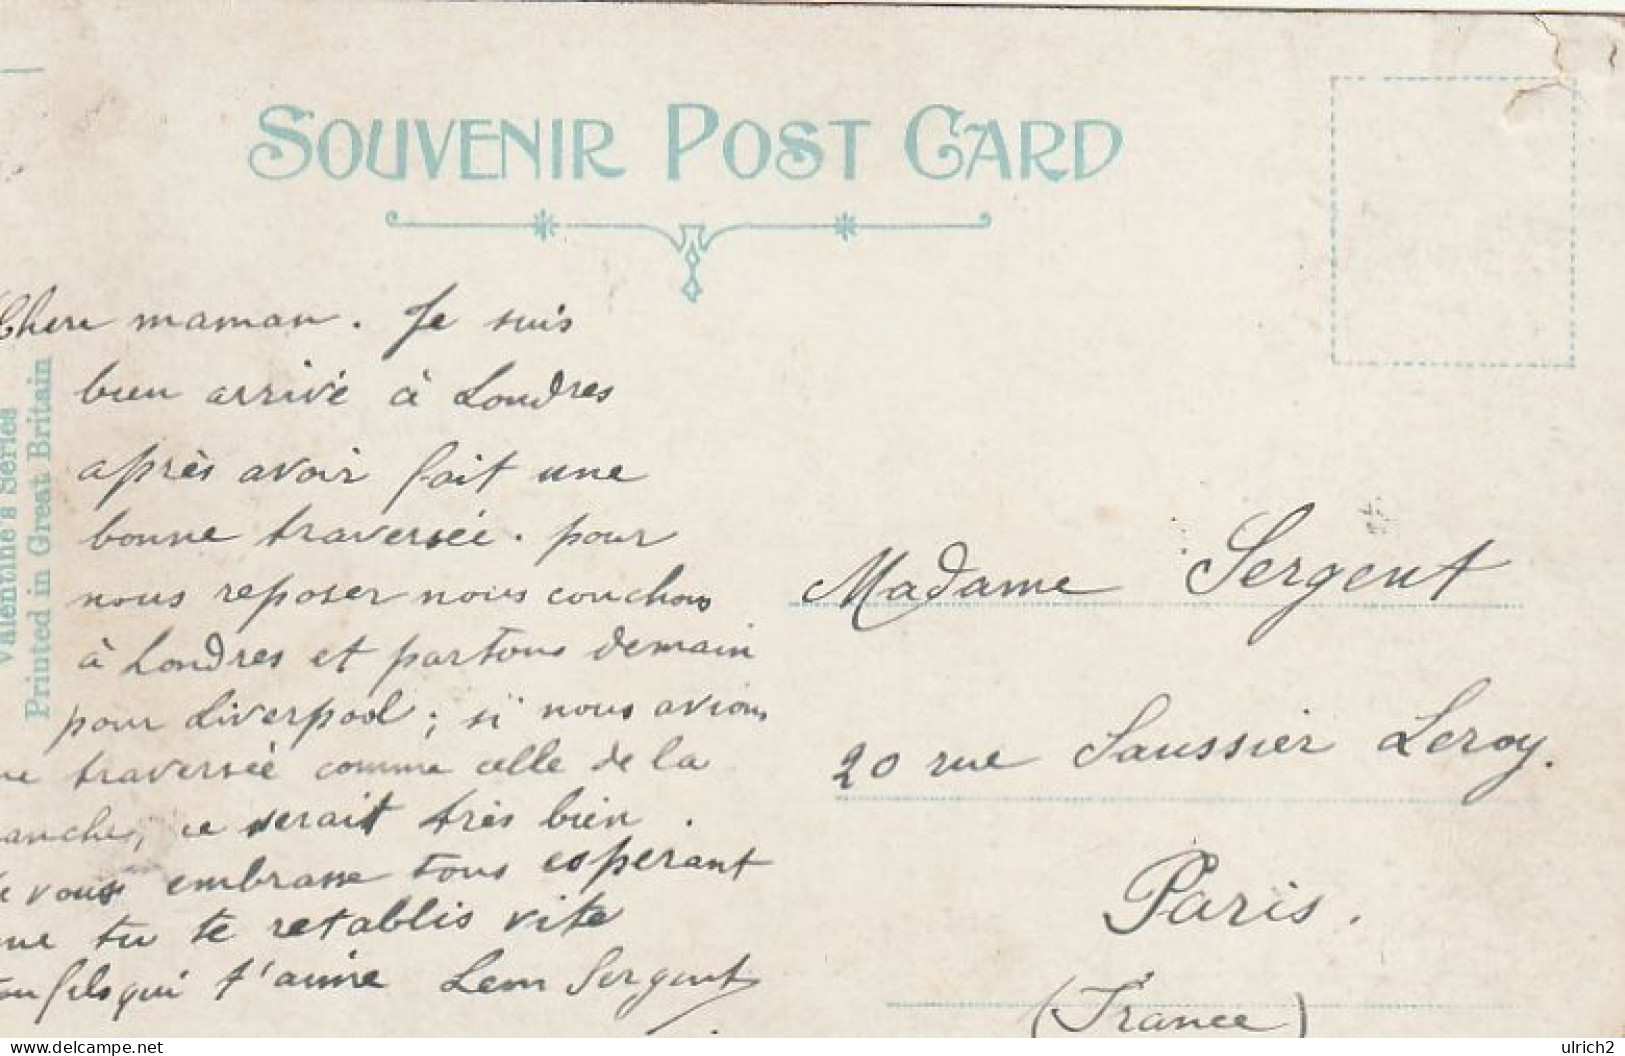 SOUVENIR POST CARD
Valentine's Series
Printed in Great Britain
Chere maman. Je suis
bien arrivé à Londres
après avoir fait une
bonne traversée. pour
nous reposer nous couchons
à Londres et partons demain
pour Liverpool; si nous avions
ne traversée comme celle de la
anche, ce serait très bien.
e vous embrasse tous esperant
ue tu te retablis vite
ton fils qui t'aime Sergent
Madame Sergent
20 rue Saussier Leroy.
Paris.
(France)
delcampe.net
ulrich2